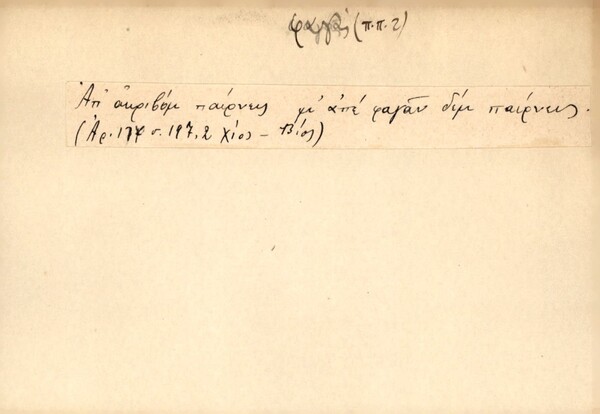 φαγᾶς (π.π. 2)
Ἀπ' ἀκριβὸμ παίρνεις μ' ἀπὲ φαγᾶν δὲμ παίρνεις.
(Ἀρ. 174 σ. 197, 2 Χίος - Βίος)